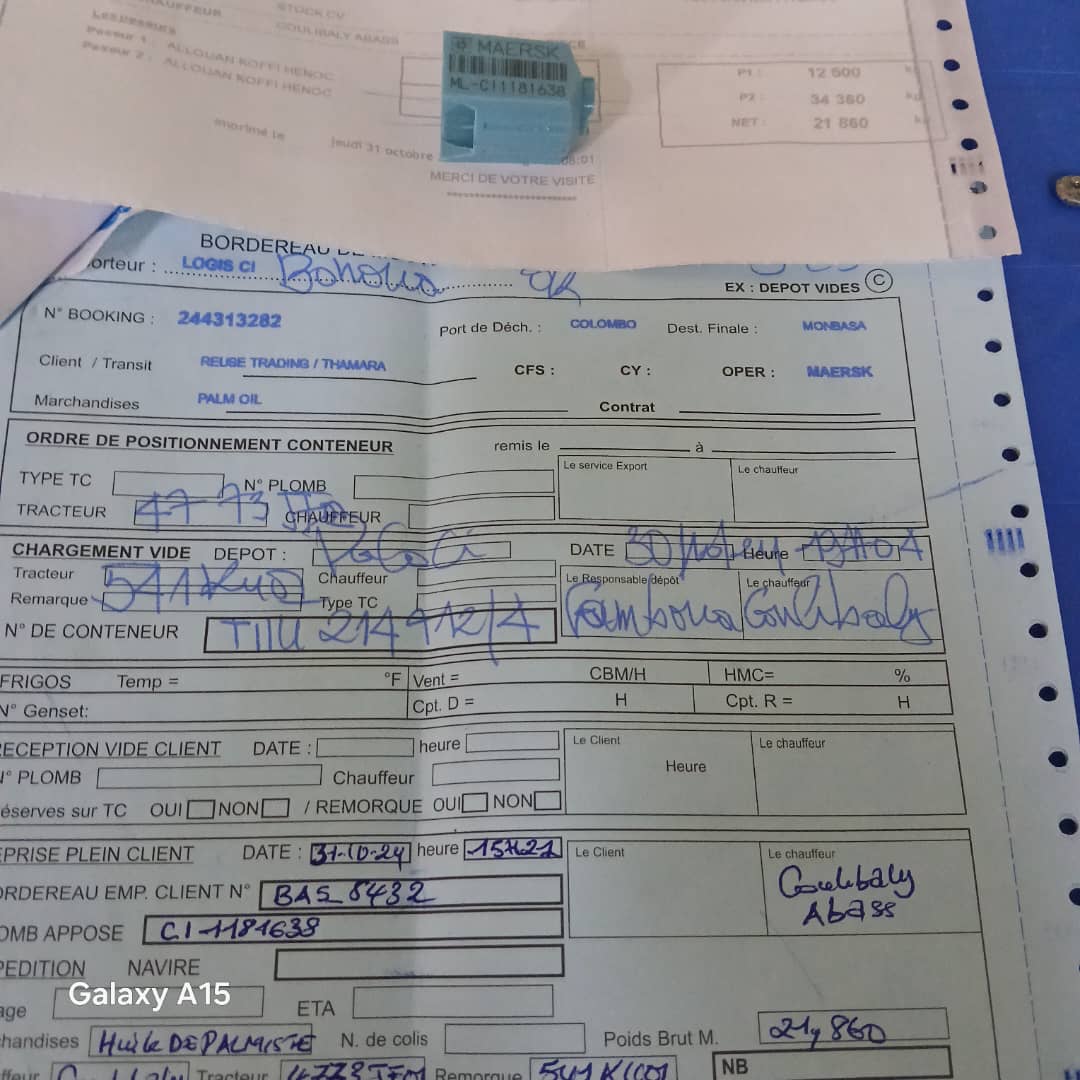 CHAUFFEUR STOCK CV
COULIBALY ABASS
Peseur 1 : ALLOUAN KOFFI HENOC
Peseur 2 : ALLOUAN KOFFI HENOC
MAERSK
ML-CI1181638
P1 : 12 500 kg
P2 : 34 360 kg
NET : 21 860 kg
imprimé le jeudi 31 octobre 08:01
MERCI DE VOTRE VISITE
BORDEREAU DE
orteur : LOGIS CI
EX : DEPOT VIDES C
N° BOOKING : 244313282 Port de Déch. : COLOMBO Dest. Finale : MONBASA
Client / Transit REUSE TRADING / THAMARA CFS : CY : OPER : MAERSK
Marchandises PALM OIL Contrat
ORDRE DE POSITIONNEMENT CONTENEUR remis le à
TYPE TC N° PLOMB Le service Export Le chauffeur
TRACTEUR 4773 CHAUFFEUR
CHARGEMENT VIDE DEPOT : DATE Heure 19H04
Tracteur Chauffeur Le Responsable dépôt Le chauffeur
Remarque Type TC Coulibaly
N° DE CONTENEUR TIIU 214912/4
FRIGOS Temp = °F Vent = CBM/H HMC= %
N° Genset: Cpt. D = H Cpt. R = H
RECEPTION VIDE CLIENT DATE : heure Le Client Le chauffeur
N° PLOMB Chauffeur Heure
éserves sur TC OUI NON / REMORQUE OUI NON
EPRISE PLEIN CLIENT DATE : 31-10-24 heure 15H21 Le Client Le chauffeur
ORDEREAU EMP. CLIENT N° BAS 5432 Coulibaly
OMB APPOSE CI-1181638 Abass
PEDITION NAVIRE
Galaxy A15
age ETA
chandises Huile DE PALMISTE N. de colis Poids Brut M. 21,860
ffeur Coulibaly Tracteur Remorque NB